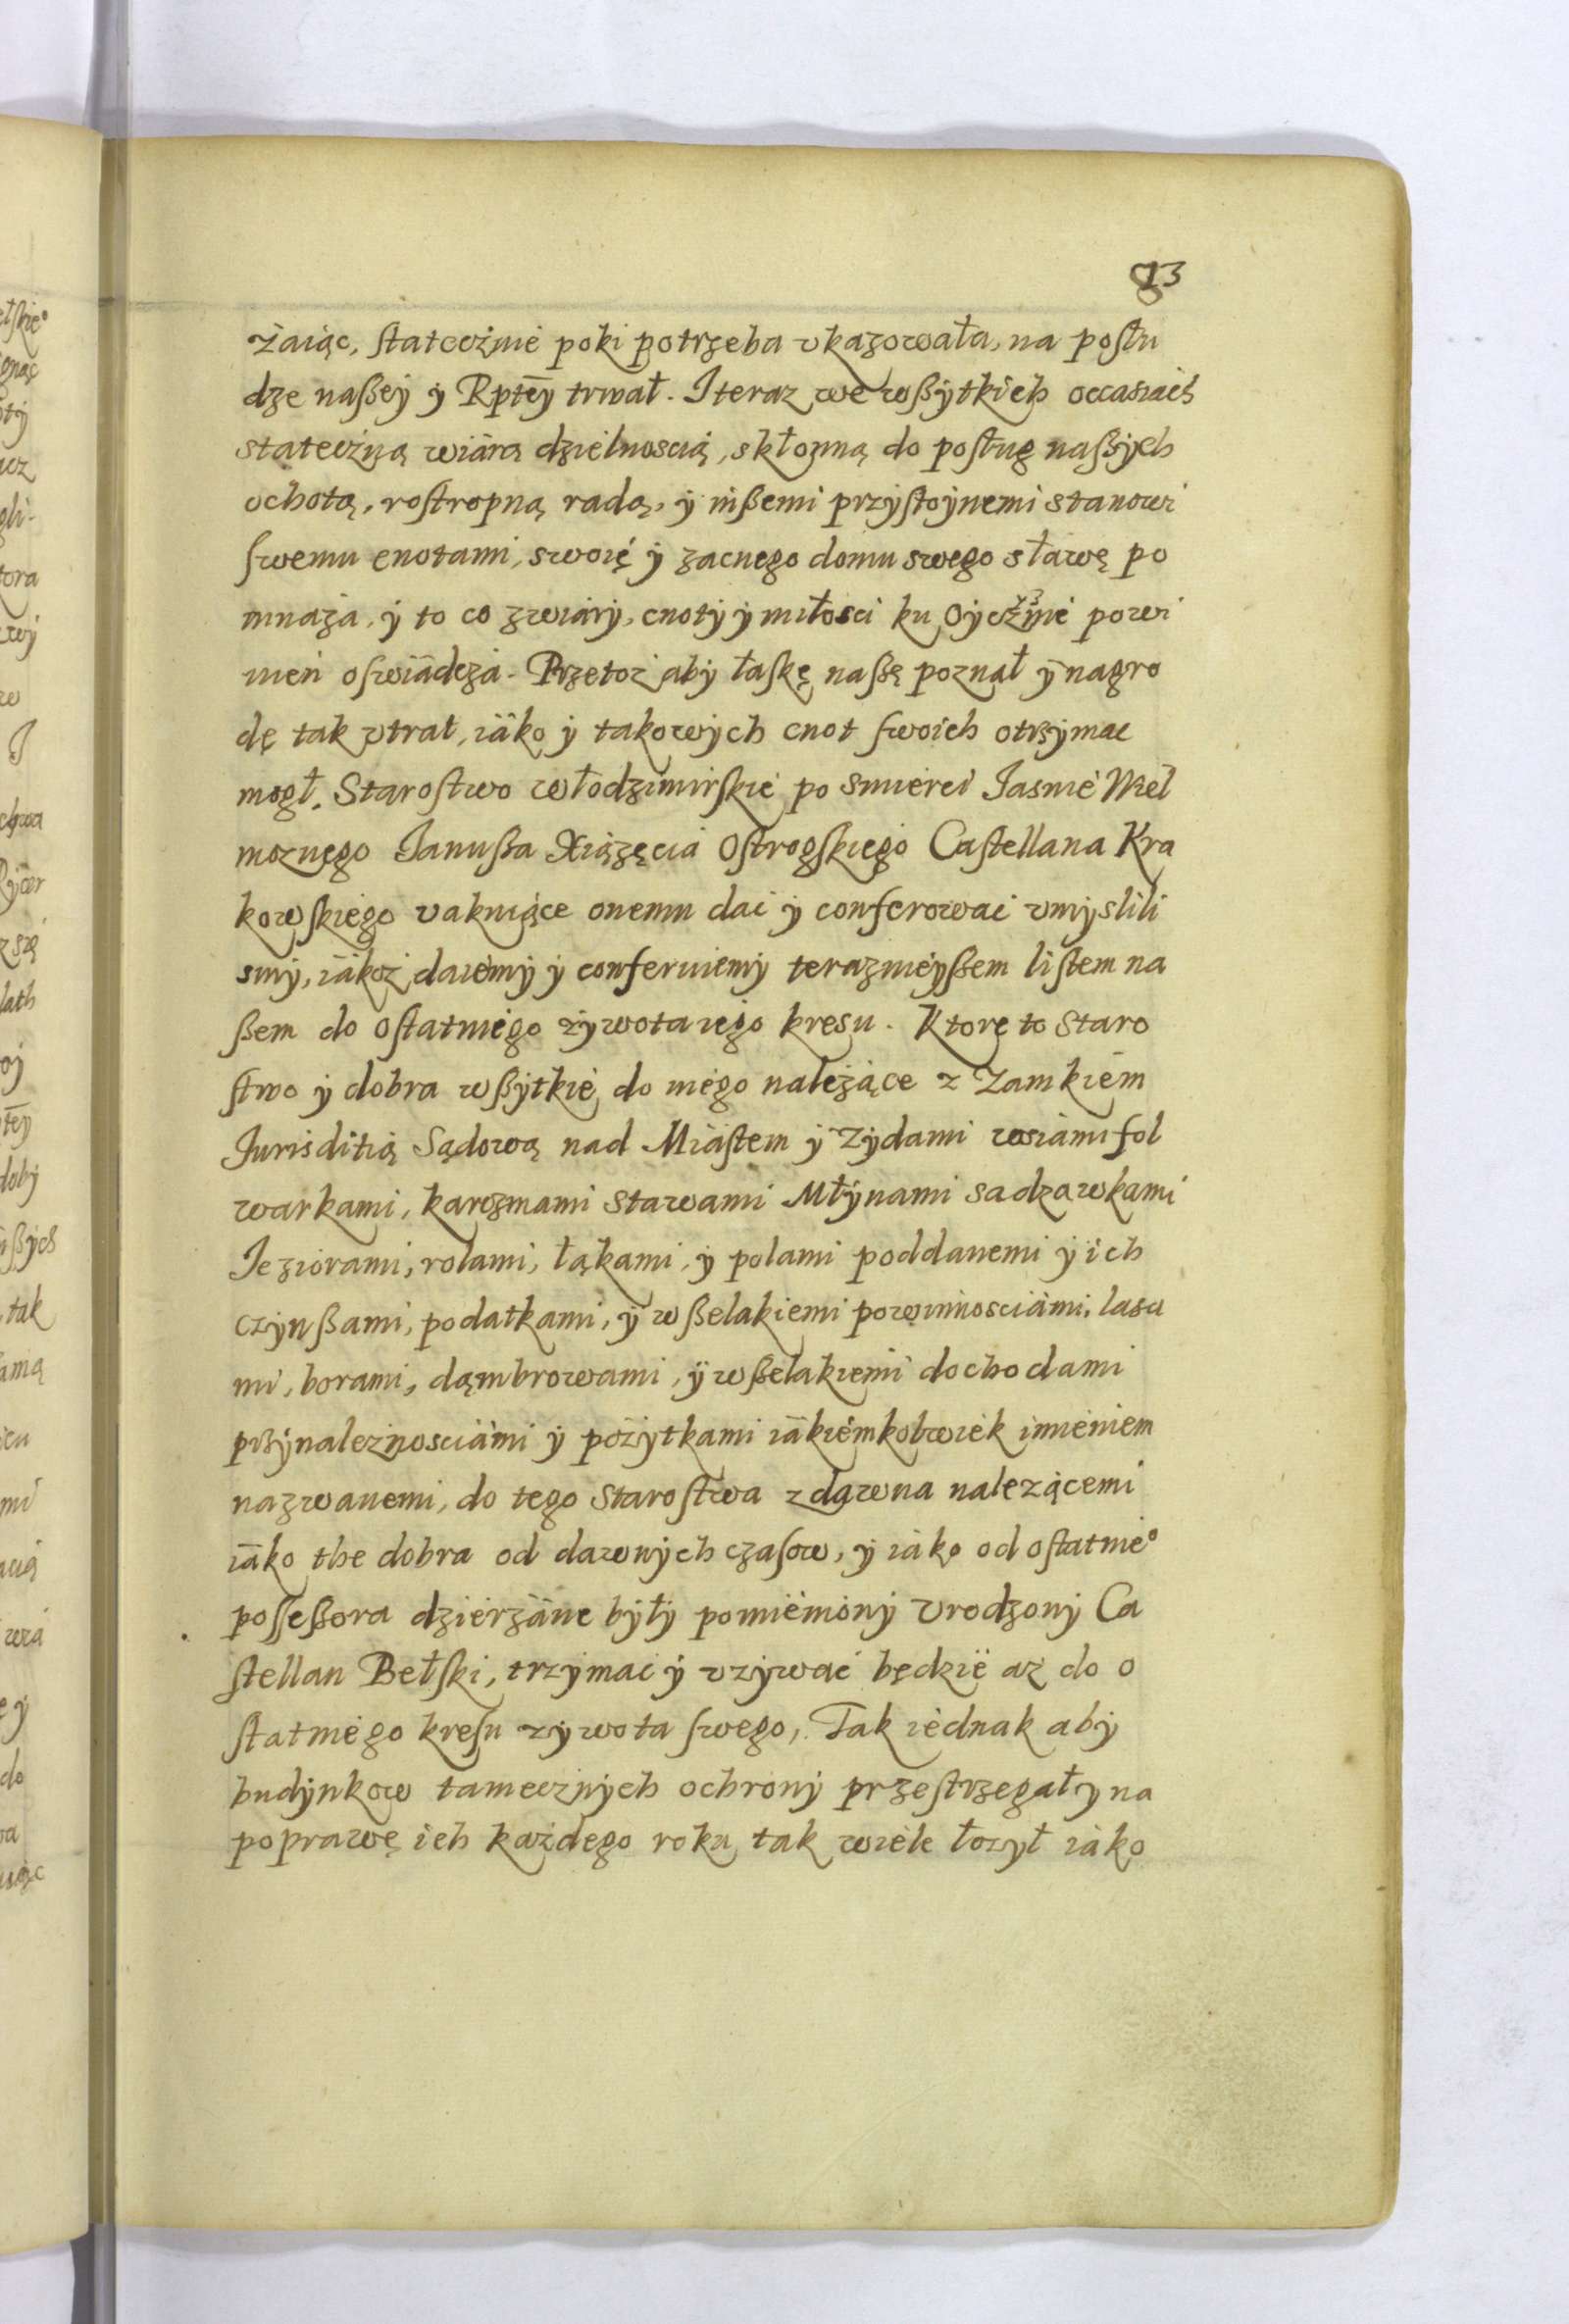 83
żaiąc, statecżnie poki potrzeba vkazowała, na posłu
dze naßey y Rptey trwał. I teraz we wßytkich occasiach
statecżną wiarą dzielnoscią, skłonną do posług naßych
ochotą, rostropną radą, y inßemi przystoynemi stanowi
swemu cnotami, swoię y zacnego domu swego sławę po
mnaża, y to co z wiary, cnoty y miłosci ku Oycżyznie powi
nien oswiadcża. Przetoż aby łaskę naßę poznał y nagro
dę tak vtrat, iako y takowych cnot swoich otrzymac
mogł, Starostwo Włodzimirskie po smierci Jasnie Wiel
moznego Janußa Xiążęcia Ostrogskiego Castellana Kra
kowskiego vakuiące onemu dac y conferowac vmyslili
smy, iakoż daiemy y conferuiemy teraznieyßem listem na
ßem do ostatniego żywota iego kresu. Ktore to Staro
stwo y dobra wßytkie do niego należące z Zamkiem
Jurisditią Sądową nad Miastem y Zydami wsiami fol
warkami, karczmami stawami Młynami sadzawkami
Jeziorami, rolami, łąkami, y polami poddanemi y ich
czynßami, podatkami, y wßelakiemi powinnosciami, lasa
mi, borami, dąmbrowami, y wßelakiemi dochodami
przynależnosciami y pożytkami iakiemkolwiek imieniem
nazwanemi, do tego Starostwa z dawna nalezącemi
iako the dobra od dawnych czasow, y iako od ostatnie°
possessora dzierżane były pomieniony Vrodzony Ca
stellan Bełski, trzymac y vzywac będzie az do o
statniego kresu zywota swego, Tak iednak aby
budynkow tamecznych ochrony przestrzegał y na
poprawę ich każdego roku tak wiele łozył iako